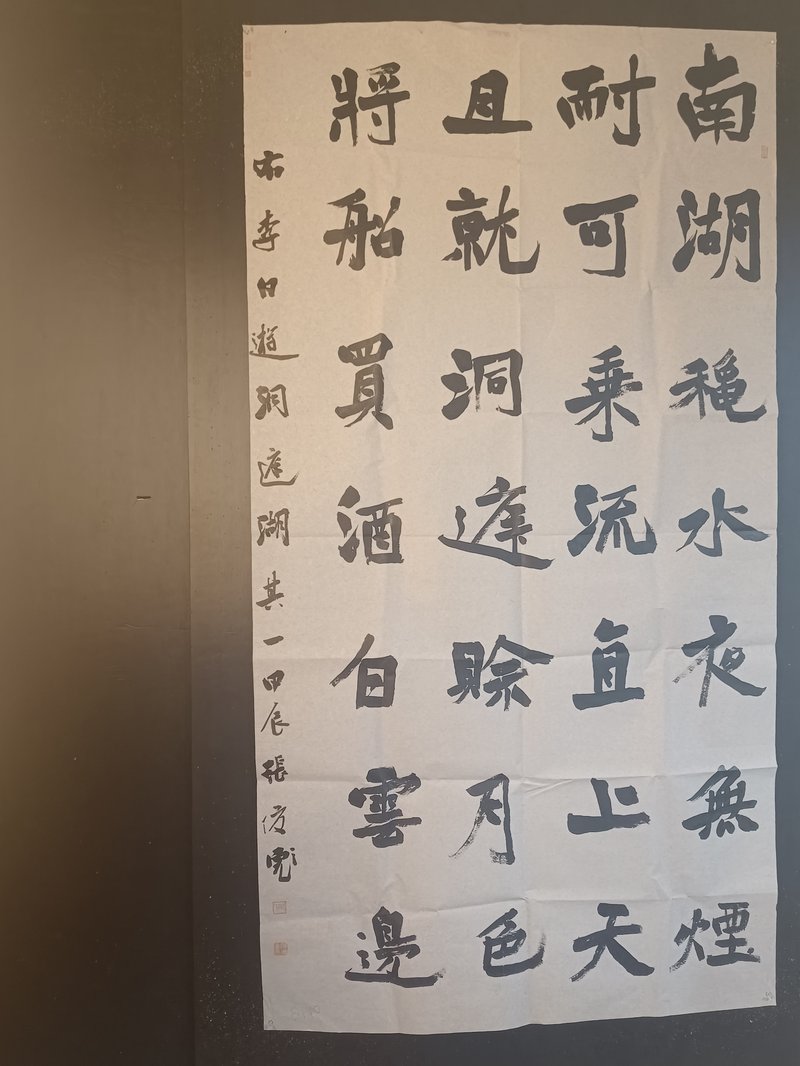 南湖穐水夜無煙
耐可乗流直上天
且就洞庭賖月色
將船買酒白雲邊
右李白遊洞庭湖其一甲辰張俊彪